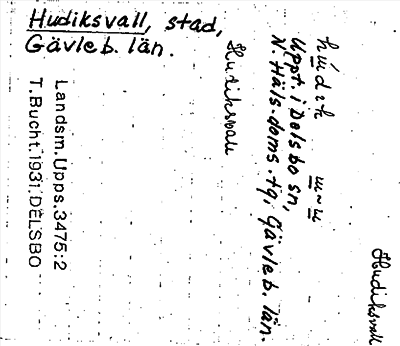 Hudiksvall, stad,
Gävleb. län.
Hudiksvall
Uppt. i Delsbo sn,
N. Häls. doms. tg, Gävleb. län.
Landsm. Upps. 3475:2
T. Bucht. 1931. DELSBO
Hudiksvall